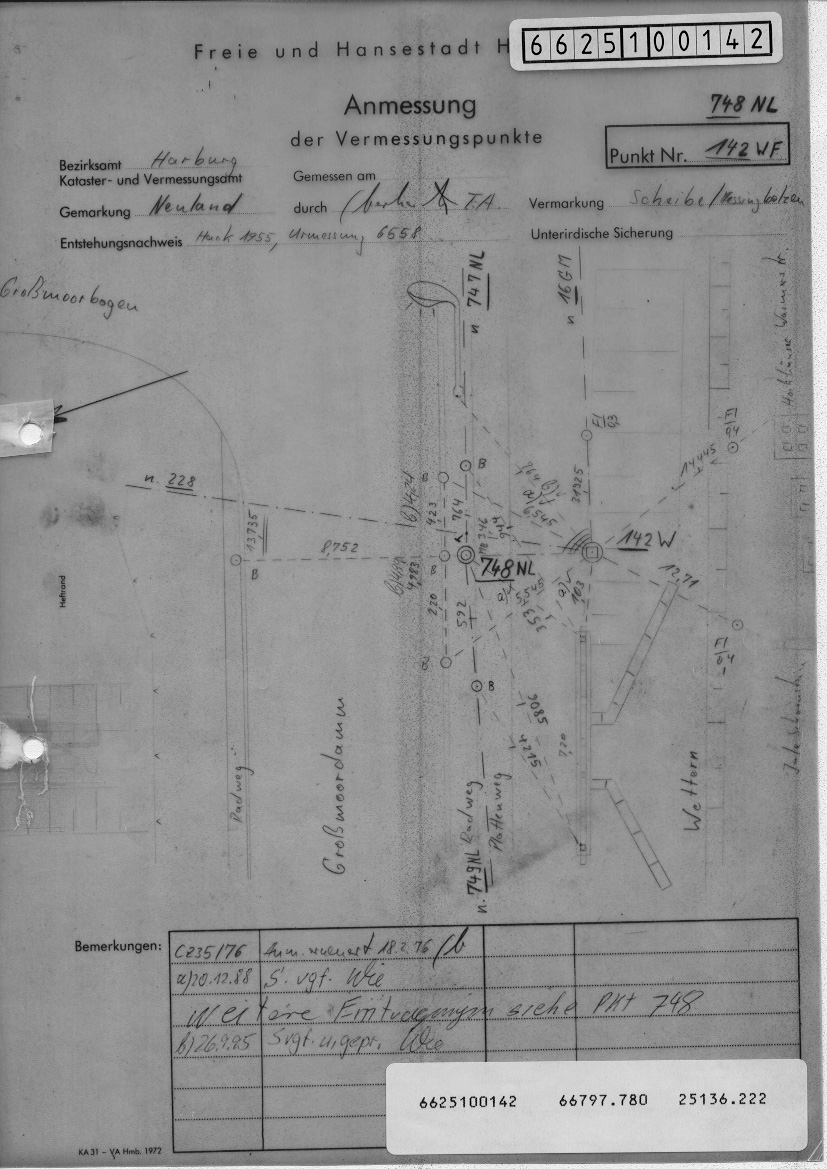 Freie und Hansestadt H
6625100142
Anmessung
der Vermessungspunkte
748 NL
Punkt Nr. 142 WF
Bezirksamt Harburg
Kataster- und Vermessungsamt
Gemessen am
Gemarkung Neuland
durch T.A.
Vermarkung Scheibe/Messingbolzen
Entstehungsnachweis Huck 1955, Urmessung 6558
Unterirdische Sicherung
Großmoorbogen
n 747 NL
n 16 GM
Fl 0,3
Fl 0,4
14,445
n. 228
B
B
B
B
13,735
8,752
b) 4,74
4,23
7,64
7,64
b)
a)
6,545
21,325
142 W
748 NL
12,71
4,983
2,20
5,92
a)
5,545
3,53
a)
1,03
B
Fl 0,4
9,085
4,215
7,20
Heftrand
Radweg
Großmoordamm
n. 749 NL
Radweg
Plattenweg
Wettern
Bemerkungen:
C235/76
18.2.76
a) 20.12.88 S. vgf. Wie
Weitere Eintragungen siehe Pkt 748
b) 26.9.95 Svgf. u. gepr. Wie
6625100142 66797.780 25136.222
KA 31 – VA Hmb. 1972